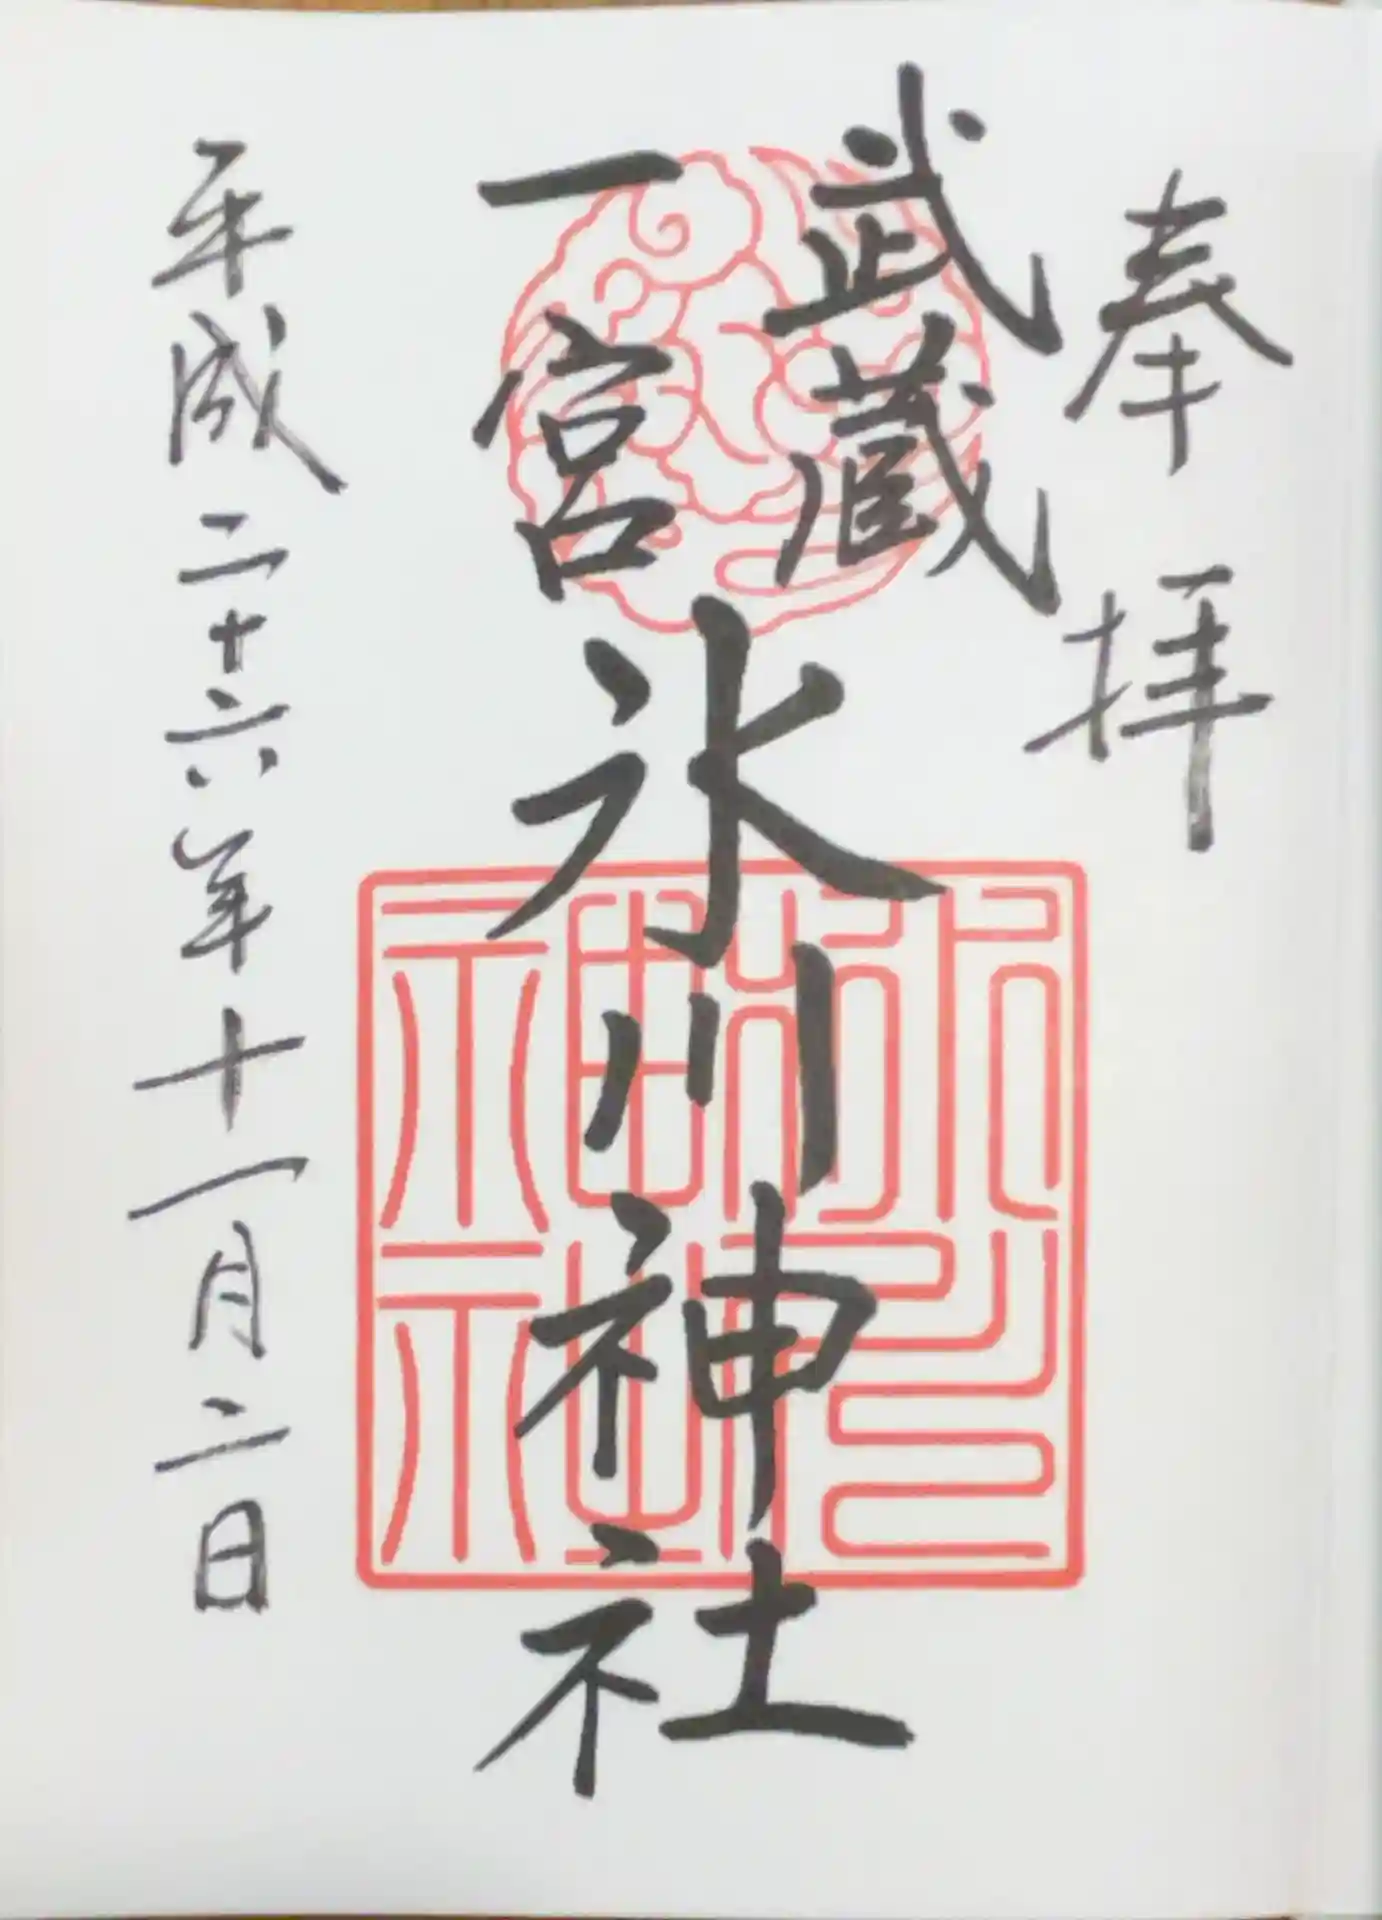 奉拝
武蔵
一宮
氷川神社
平成二十六年十一月二日
氷川神社